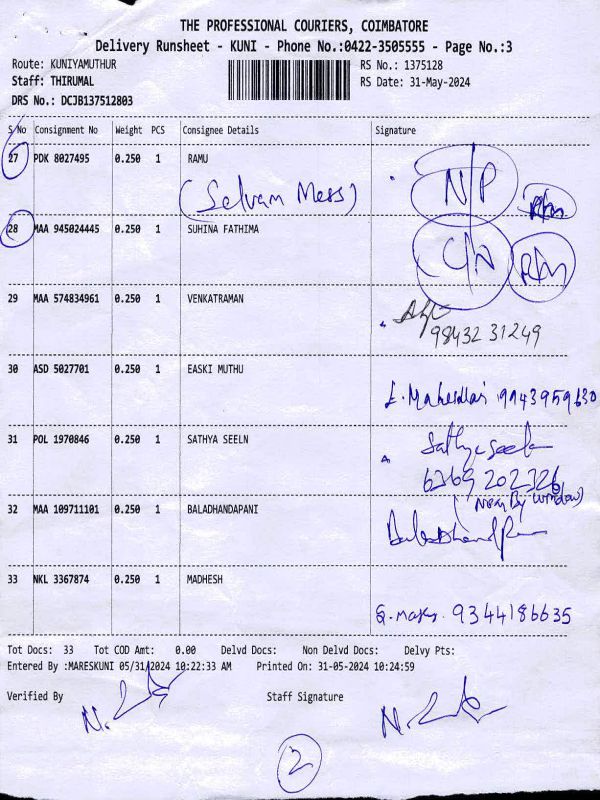 THE PROFESSIONAL COURIERS, COIMBATORE
Delivery Runsheet - KUNI - Phone No.:0422-3505555 - Page No.:3
Route: KUNIYAMUTHUR RS No.: 1375128
Staff: THIRUMAL RS Date: 31-May-2024
DRS No.: DCJB137512803
S No Consignment No Weight PCS Consignee Details Signature
27 PDK 8027495 0.250 1 RAMU
(Selvam Mess) N/P
28 MAA 945024445 0.250 1 SUHINA FATHIMA
C/N
29 MAA 574834961 0.250 1 VENKATRAMAN
98432 31249
30 ASD 5027701 0.250 1 EASKI MUTHU
9943959630
31 POL 1970846 0.250 1 SATHYA SEELN
Sathya seela
6369 202326
(Near By window)
32 MAA 109711101 0.250 1 BALADHANDAPANI
33 NKL 3367874 0.250 1 MADHESH
9344186635
Tot Docs: 33 Tot COD Amt: 0.00 Delvd Docs: Non Delvd Docs: Delvy Pts:
Entered By :MARESKUNI 05/31/2024 10:22:33 AM Printed On: 31-05-2024 10:24:59
Verified By Staff Signature
2